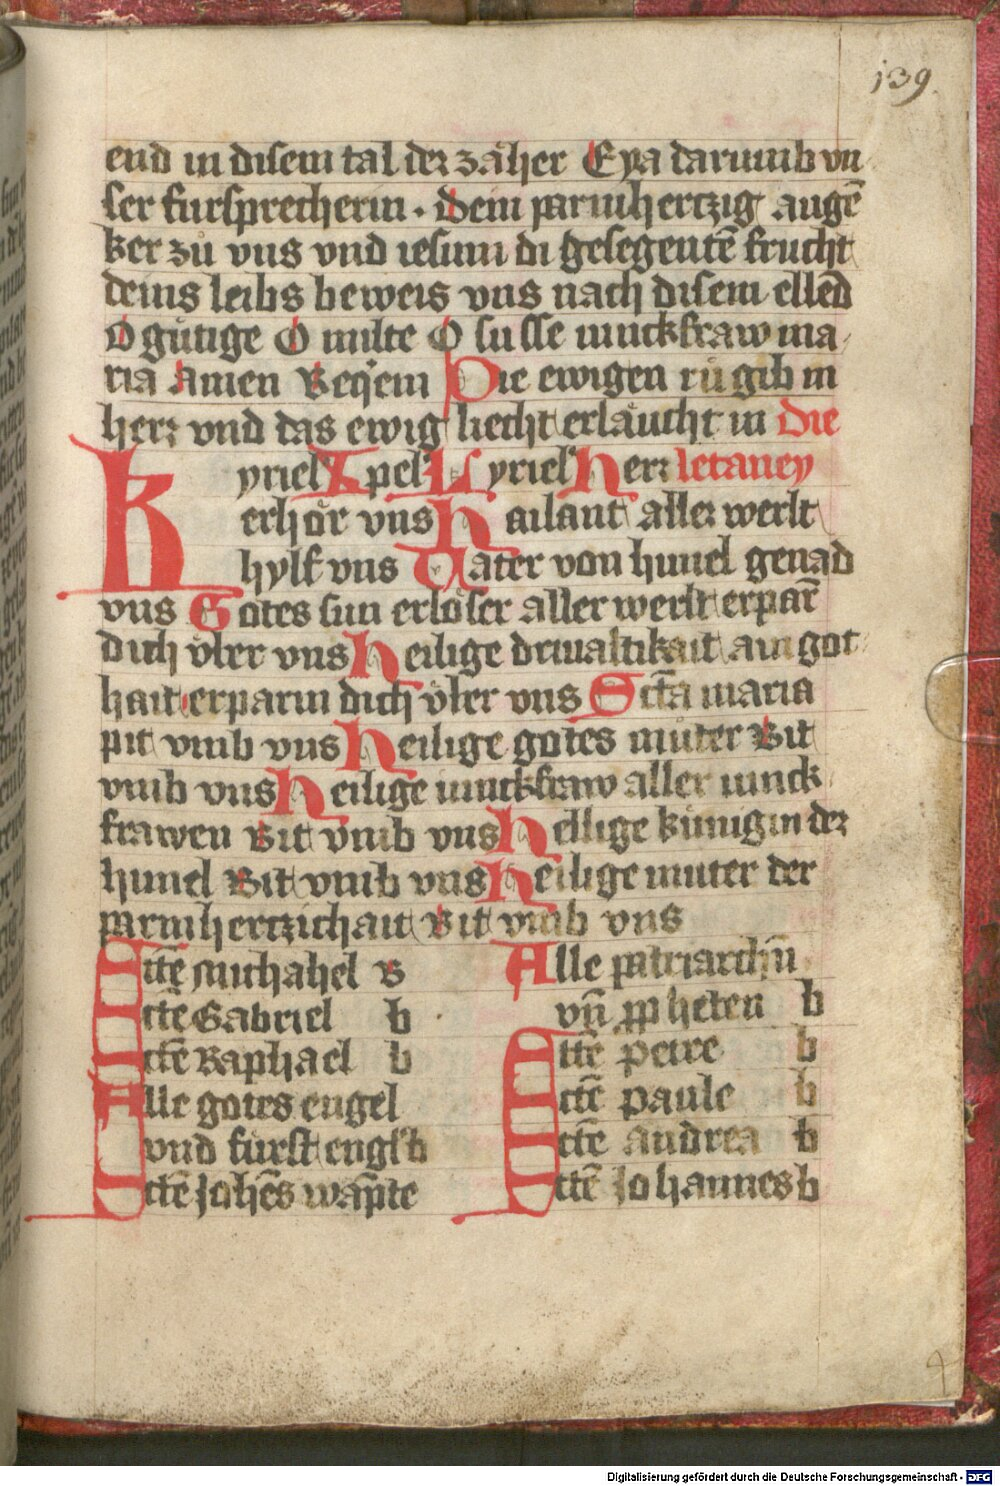 139.
end in disem tal der zäher Eya darumb vn
ser fursprecherin · Dein parmhertzig augē
ker zů vns vnd iesum di gesegentē frucht
deins leibs beweis vns nach disem ellēd
O gůtige O milte O susse iunckfraw ma
ria Amen Reqͥem Die ewigen rů gib in
herr vnd das ewig liecht erläucht in Die
Kyriel Xpel Kyriel Herr letaney
erhör vns Hailant aller werlt
hylf vns Vater von himel genad
vns Gotes sun erlöser aller werlt erparē
dich vͤber vns Heilige driualtikait ain got
hait erparm dich vͤber vns Sctā maria
pit vmb vns Heilige gotes můter Bit
vmb vns Heilige iunckfraw aller iunck
frawen Bit vmb vns Heilige künigin der
himel Bit vmb vns Heilige muter der
parmhertzichait Bit vmb vns
Sctē Michahel B
Sctē Gabriel b
Sctē Raphael b
Alle gotes engel
vnd fürst engl b
Sctē Johēs wāpte
Alle patriarchn̄
vn̄ ꝓpheten b
Sctē petre b
Sctē paule b
Sctē Andrea b
Sctē Johannes b
Digitalisierung gefördert durch die Deutsche Forschungsgemeinschaft - DFG